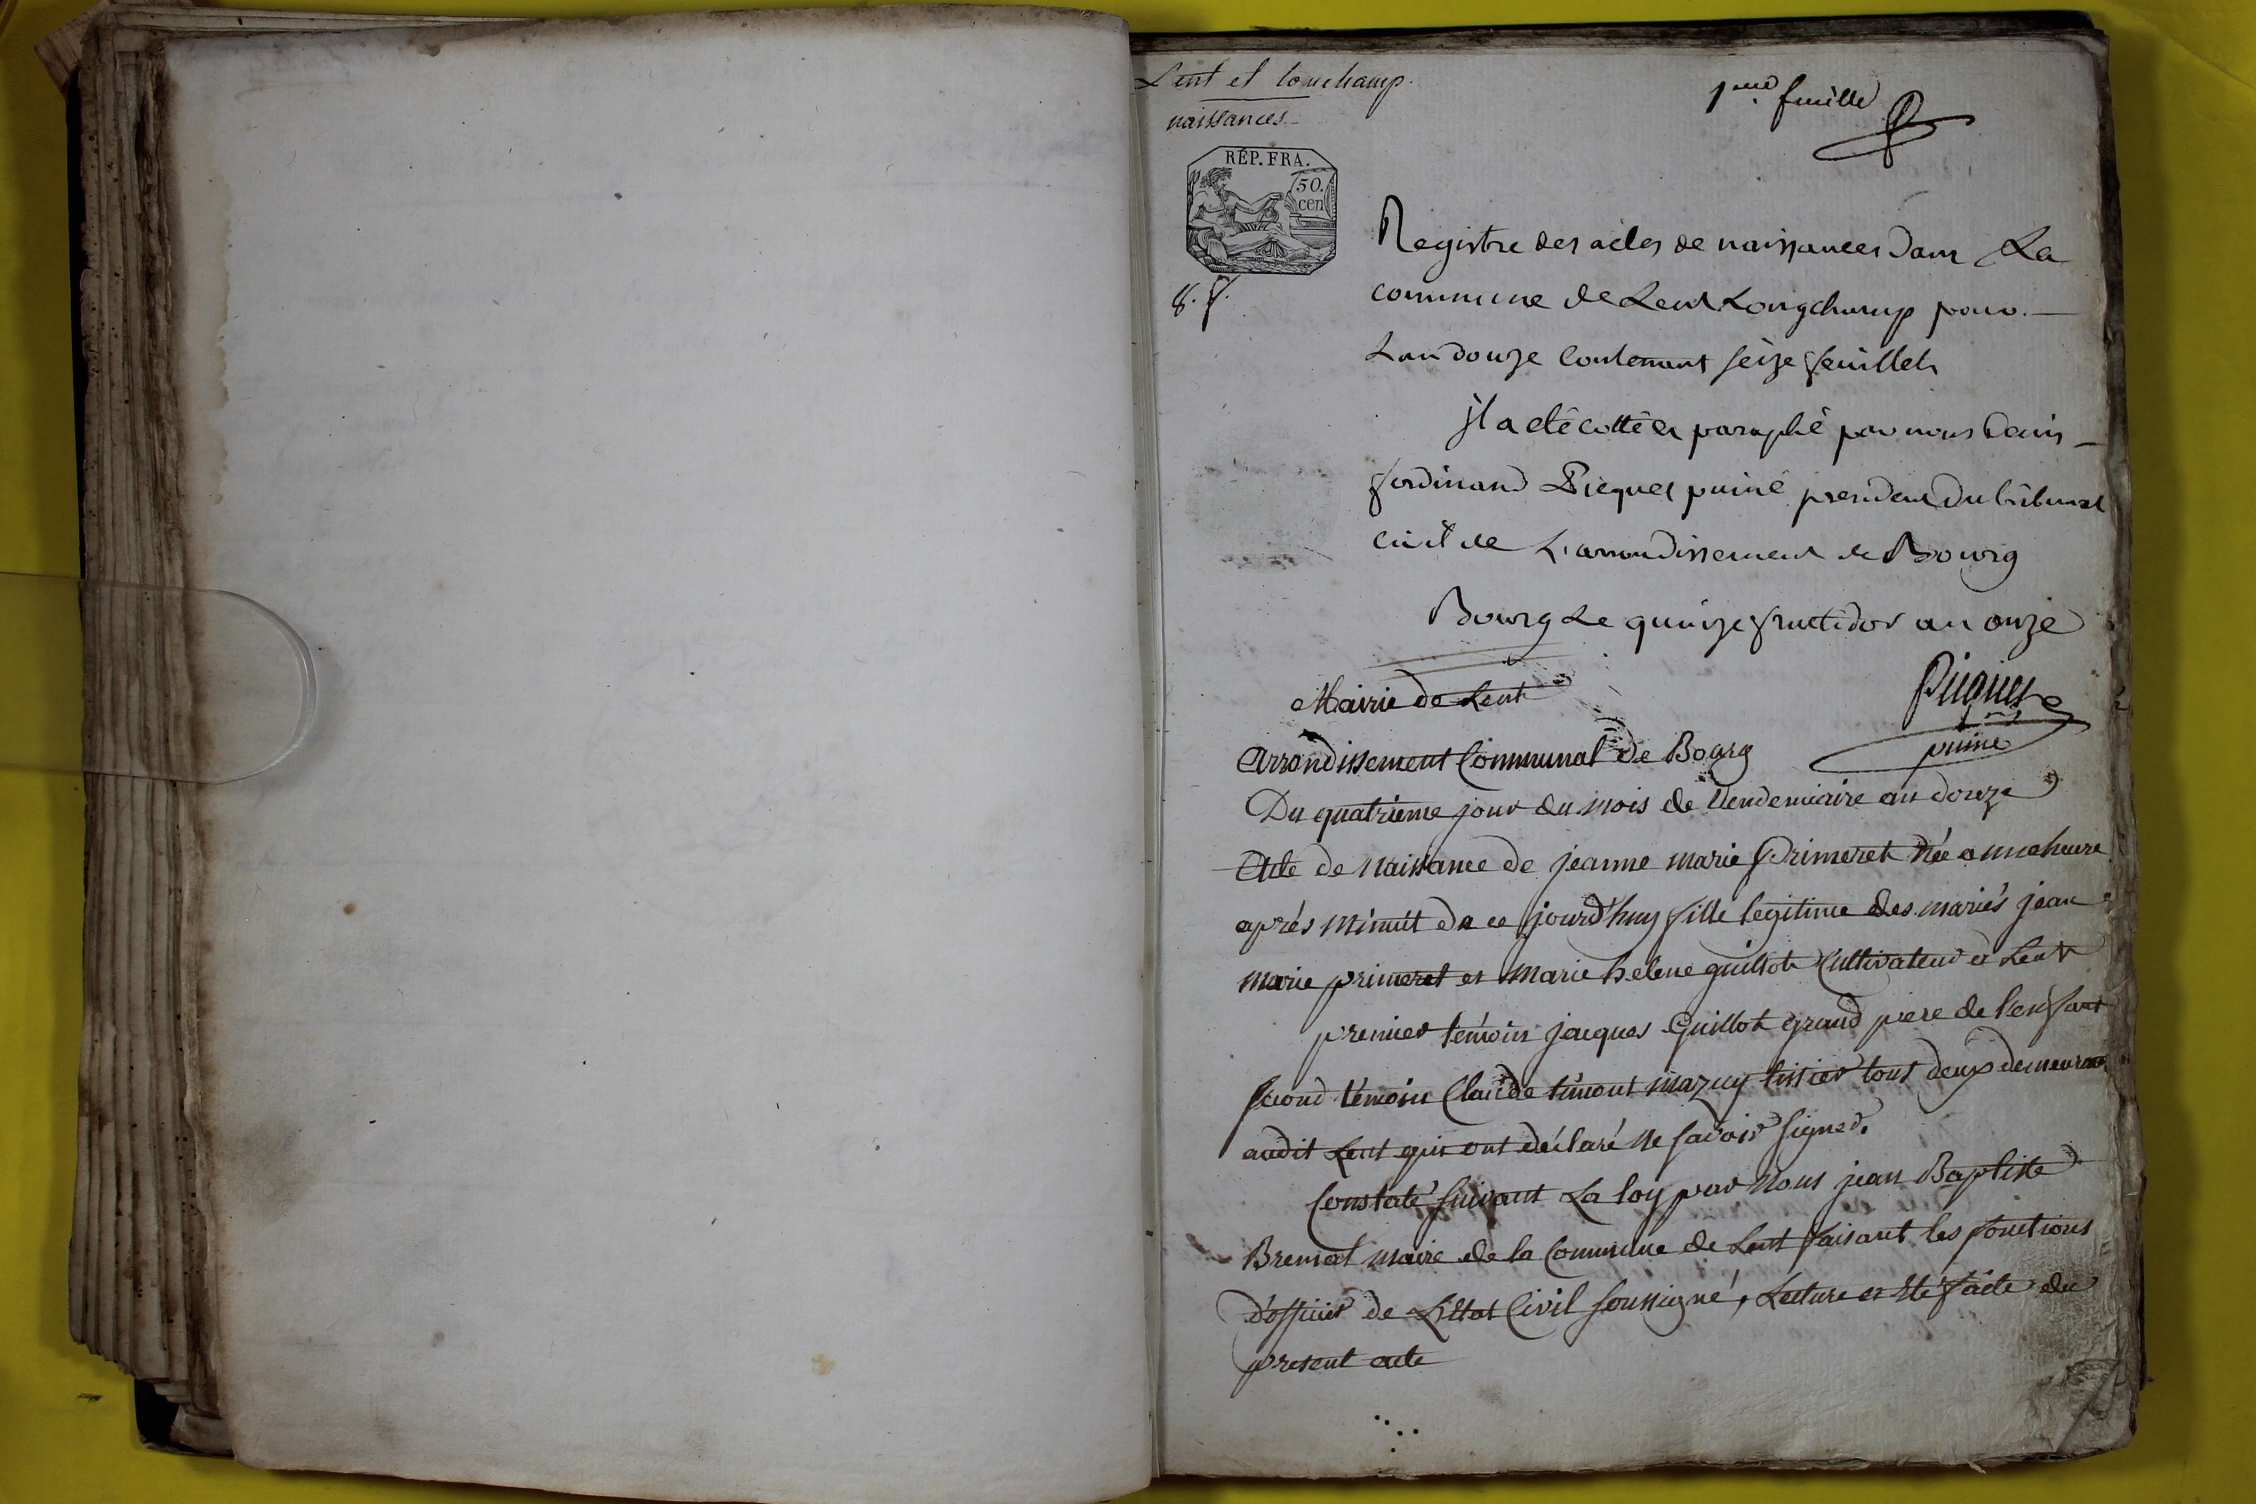 Lent et Lonchamp.
naissances
1ere feuille
RÉP. FRA.
50.
cen
Registre des actes de naissances dans La
commune de Lent Longchamp pour
L'an douze contenant seize feuillets
il a été cotté et paraphé par nous Denis
ferdinand Picquet puiné president du tribunal
civil de L'arrondissement de Bourg
Bourg Le quinze fructidor an onze
Picquet
puiné
Mairie de Lent
Arrondissement Communal de Bourg
Du quatrieme jour du mois de Vendemiaire an douze
Acte de Naissance de jeanne marie Primeret Née a une heure
après Minuit de ce jourd'huy fille legitime des mariés jean
marie primeret et Marie helene guillot Cultivateur à Lent
premier témoin jacques Guillot grand pere de l'enfant
second témoin Claude timont mazuy tissier tous deux demeurant
audit Lent qui ont déclaré Ne savoir signer.
Constaté suivant La loy par Nous jean Baptiste
Bremal maire de la Commune de Lent faisant les fonctions
d'officier de L'Etat Civil soussigné, Lecture et été faite du
present acte